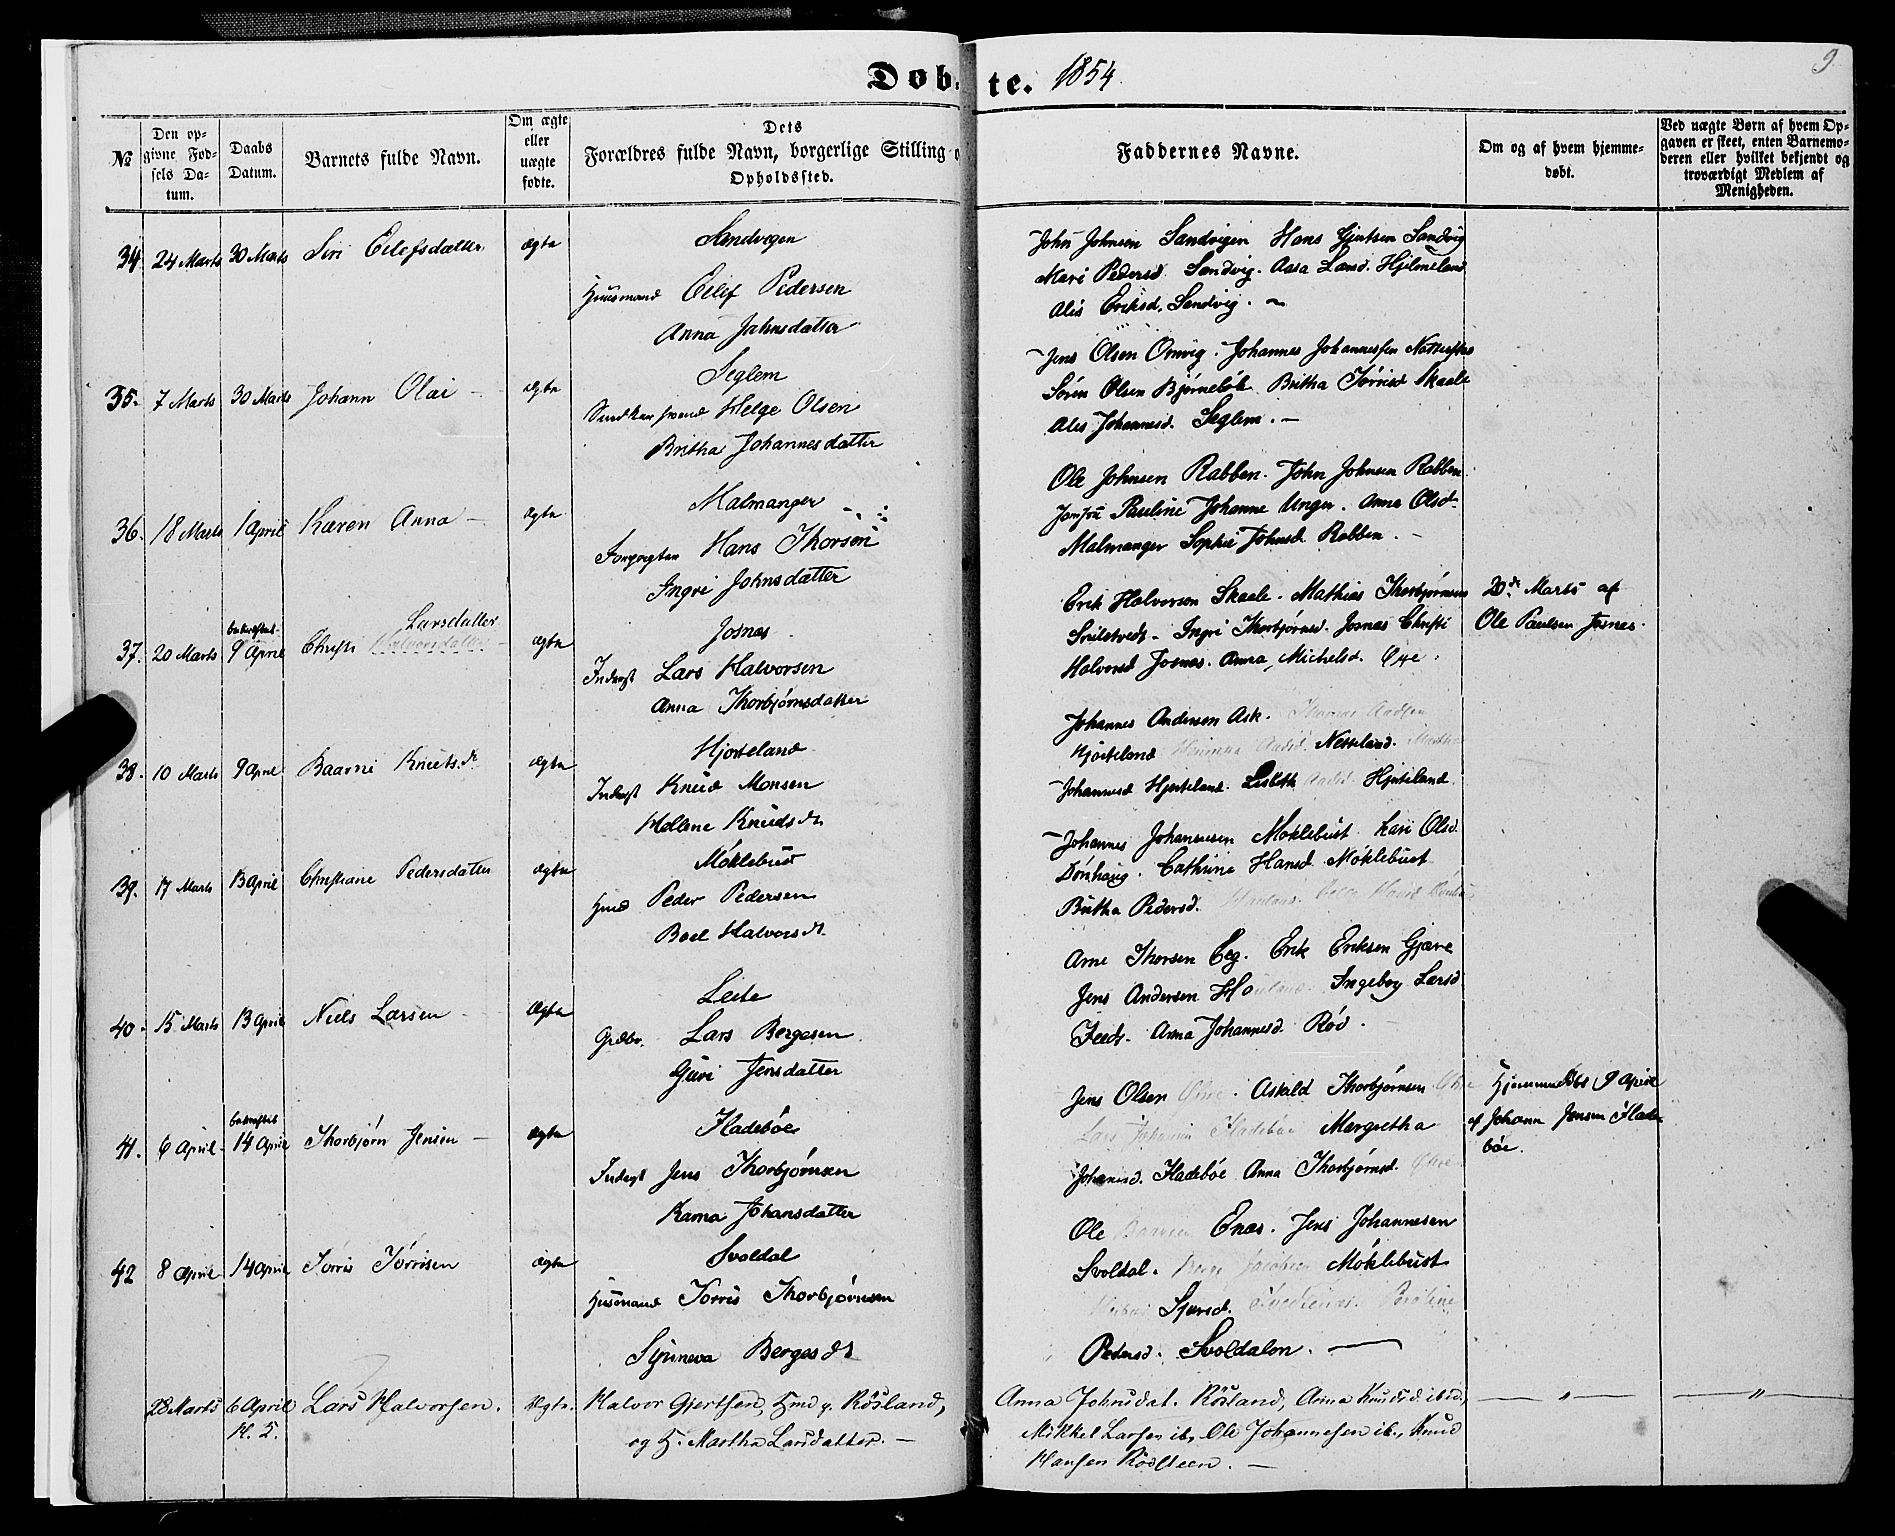 Døbte. 1854.
9
№
Den opgivne Fødsels Datum.
Daabs Datum.
Barnets fulde Navn.
Om ægte eller uægte fødte.
Dets Forældres fulde Navn, borgerlige Stilling o
Opholdssted.
Faddernes Navne.
Om og af hvem hjemmedøbt.
Ved uægte Børn af hvem Opgaven er skeet, enten Barnemoderen eller hvilket bekjendt og troværdigt Medlem af Menigheden.
34 24 Marts 30 Marts Siri Eilefsdatter ægte
Sandvigen
Huusmand Eilif Pedersen
Anna Johnsdatter
John Johnsen Sandvigen Hans Gjertsen Sandvig
Mari Pedersd. Sandvig. Aasa Larsd. Hjelmeland
Alis Eriksd. Sandvig.
35. 7 Marts 30 Marts Johann Olai ægte
Seglem
Helge Olsen
Britha Johannesdatter
Jens Olsen Omvig. Johannes Johannessen
Sören Olsen Bjørnebøle Britha Törrisd Skaale
Alis Johannesd. Seglem.
36. 18 Marts 1 April Karen Anna ægte
Malmanger
Hans Thorsen
Ingri Johnsdatter
Ole Johnsen Rabben. John Johnsen Rabben
Jomfru Pauline Johanne Unger. Anna Olsd.
Malmanger Sophie Johnsd. Rabben.
37. 20 Marts 9 April Christi Larsdatter ægte
bekræftet
Josnes
Inderst Lars Halvorsen
Anna Thorbjørnsdatter
Erik Halvorsen Skaale. Mathias Thorbjørnsen
Ingri Thorbjørnsd. Josnes Christi
Halvorsd Josnes. Anna Michelsd. Øye.
20de Marts af
Ole Paulsen Josnes.
38. 10 Marts 9 April Baarni Knutsdr ægte
Hjorteland
Inderst Knud Monsen
Hellene Knudsdr
Johannes Andersen Ask.
Hjorteland Netteland.
Johannesd Hjorteland. Lisbeth Hjorteland
39. 17 Marts 13 April Christiane Pedersdatter ægte
Møklebust
Hmd Peder Pedersen
Boel Halvorsdr
Johannes Johannesen Møklebust Kari Olsd.
Dønhaug. Cathrine Hansd. Møklebust
Britha Pedersd.
40. 15 Marts 13 April Niels Larsen ægte
Leite
Grdbr. Lars Bergesen
Guri Jensdatter
Arne Thorsen Eeg. Erik Eriksen Gjære
Jens Andersen Ingebor Larsd
Anna Johannesd. Rød.
41. 6 April 14 April Thorbjørn Jensen ægte
bekræftet
Fladebøe
Inderst Jens Thorbjørnsen
Kama Johansdatter
Jens Olsen Askild Thorbjørnsen
Fladebøe Margretha
Johansd. Fladebøe Anna Thorbjørnsd.
Hjemmedøbt 9 April
af Johann Jensen Flade
bøe.
42 8 April 14 April Törris Törrisen ægte
Svoldal
Huusmand Törris Thorbjørnsen
Synneva Bergesdr
Ole Enæs. Jens Johannesen
Svoldal. Møklebust
Sjursd.
Pedersd. Svoldalen.
28 Marts 6 April Lars Halvorsen. Ægte.
H. T.
Halvor Gjertsen, Hmd p. Rösland,
og H. Martha Larsdatter. —
Anna Johnsdat. Rösland, Anna Knudsd. ibid,
Mikkel Larsen ib, Ole Johannesen ib., Knud
Hansen Rödsteen. —
— " — — " —